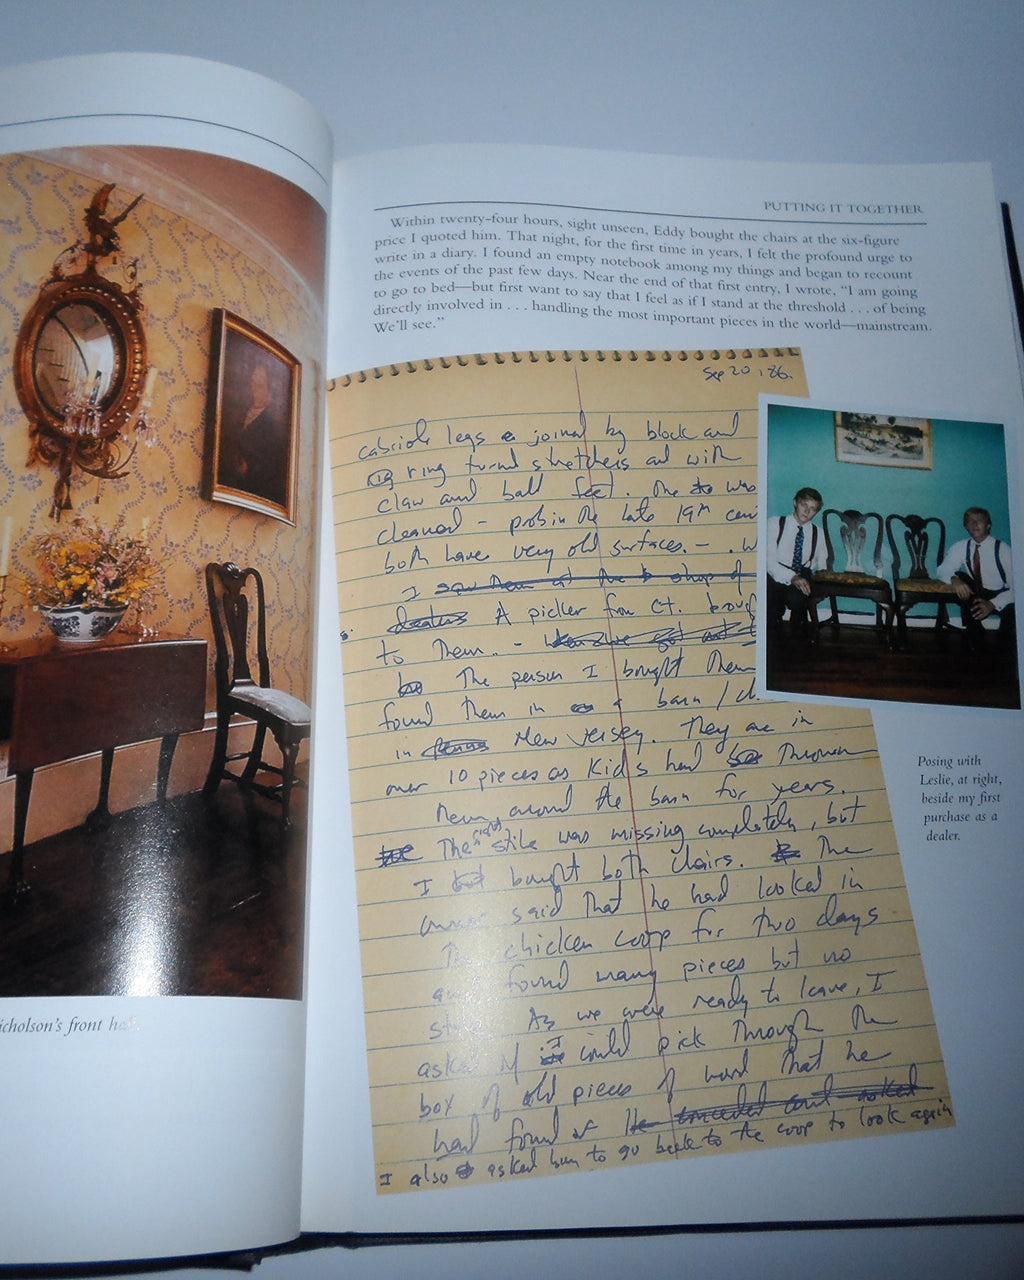 PUTTING IT TOGETHER
Within twenty-four hours, sight unseen, Eddy bought the chairs at the six-figure
price I quoted him. That night, for the first time in years, I felt the profound urge to
write in a diary. I found an empty notebook among my things and began to recount
the events of the past few days. Near the end of that first entry, I wrote, “I am going
to go to bed—but first want to say that I feel as if I stand at the threshold . . . of being
directly involved in . . . handling the most important pieces in the world—mainstream.
We’ll see.”
Sep 20, 86.
cabriole legs joined by block and
ring turned stretchers and with
claw and ball feet. One was
cleaned - prob in the late 19th cen
both have very old surfaces. - . W
I saw them at the shop of
dealers A picker from Ct. boug
to them. -
The person I bought them
found them in a barn /
in New Jersey. They are in
over 10 pieces as kids had thrown
them around the barn for years.
The right stile was missing completely, but
I bought both chairs. The
owner said that he had looked in
The chicken coop for two days
and found many pieces but no
As we were ready to leave, I
asked if I could pick through the
box of old pieces of wood that he
had found
I also asked him to go back to the coop to look again
Posing with
Leslie, at right,
beside my first
purchase as a
dealer.
icholson’s front hall.